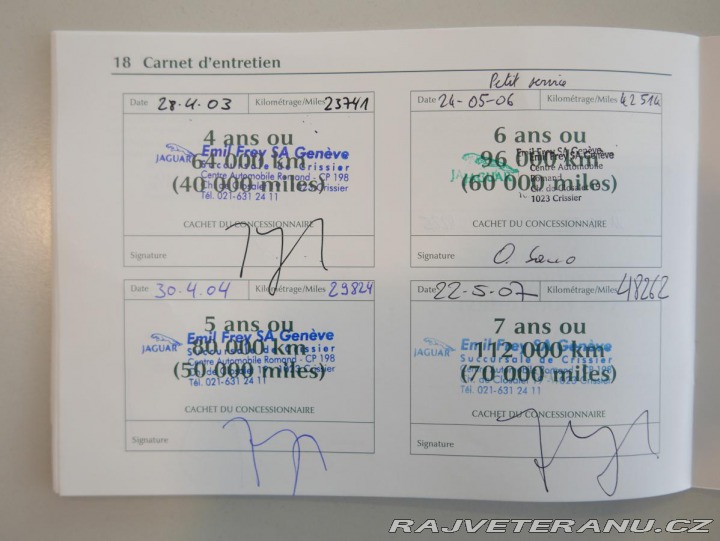 18 Carnet d'entretien
Date 28.4.03 Kilométrage/Miles 23741
4 ans ou
64 000 km
(40 000 miles)
JAGUAR
Emil Frey SA Genève
Succursale de Crissier
Centre Automobile Romand - CP 198
1023 Crissier
Tél. 021-631 24 11
CACHET DU CONCESSIONNAIRE
Signature
Petit service
Date 24-05-06 Kilométrage/Miles 42514
6 ans ou
96 000 km
(60 000 miles)
JAGUAR
Emil Frey SA Genève
Centre Automobile
Romand
1023 Crissier
CACHET DU CONCESSIONNAIRE
Signature
Date 30.4.04 Kilométrage/Miles 29824
5 ans ou
80 000 km
(50 000 miles)
JAGUAR
Emil Frey SA Genève
Succursale de Crissier
Centre Automobile Romand - CP 198
1023 Crissier
Tél. 021-631 24 11
CACHET DU CONCESSIONNAIRE
Signature
Date 22-5-07 Kilométrage/Miles 48262
7 ans ou
112 000 km
(70 000 miles)
JAGUAR
Emil Frey SA Genève
Succursale de Crissier
Centre Automobile Romand - CP 198
1023 Crissier
Tél. 021-631 24 11
CACHET DU CONCESSIONNAIRE
Signature
RAJVETERANU.CZ